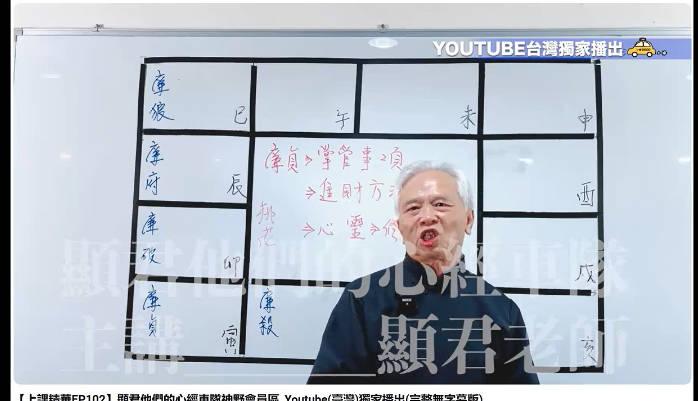 YOUTUBE台灣獨家播出
廉狼
巳
午
未
申
廉府
辰
廉貞⇒掌管事項
⇒進財方
桃花
⇒心靈⇒修
酉
廉破
卯
戌
廉貞
寅
廉殺
亥
顯君他們的心經車隊
主講____顯君老師
【上課精華EP102】顯君他們的心經車隊神野會員區 Youtube(臺灣)獨家播出(完整無字幕版)